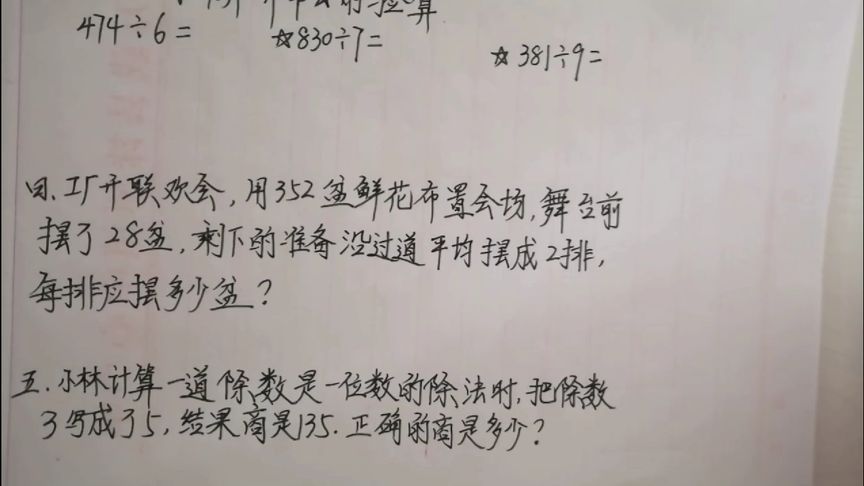 的验算
474÷6= ☆830÷7= ☆381÷9=
四.工厂开联欢会,用352盆鲜花布置会场,舞台前
摆了28盆,剩下的准备沿过道平均摆成2排,
每排应摆多少盆?
五.小林计算一道除数是一位数的除法时,把除数
3写成了5,结果商是135.正确的商是多少?